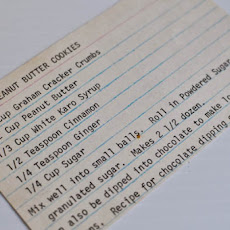 PEANUT BUTTER COOKIES
Cup Graham Cracker Crumbs
Cup Peanut Butter
1/3 Cup White Karo Syrup
1/2 Teaspoon Cinnamon
1/4 Teaspoon Ginger
1/4 Cup Sugar
Mix well into small balls. Roll in Powdered Sugar
granulated sugar. Makes 2 1/2 dozen.
also be dipped into chocolate to make
Recipe for chocolate dipping